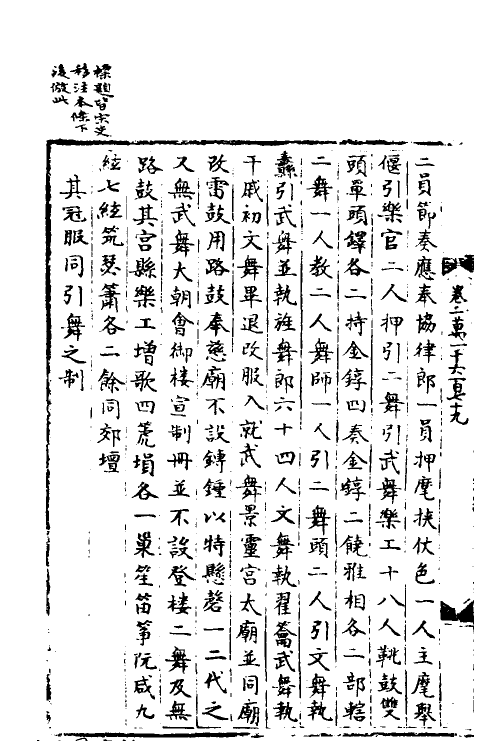 卷二萬一千六百七十九
二員節奏應奉協律郎一員押麾挾仗色一人主麾舉
偃引樂官二人押引二舞引武舞樂工十八人鞉鼓雙
頭單頭鐸各二持金錞四奏金錞二鐃雅相各二部轄
二舞一人教二人舞師一人引二舞頭二人引文舞執
纛引武舞並執旌舞郎六十四人文舞執翟籥武舞執
干戚初文舞畢退改服入就武舞景靈宮太廟並同廟
改雷鼓用路鼓奉慈廟不設鎛鍾以特懸磬一二代之
又無武舞大朝會御樓宣制冊並不設登樓二舞及無
路鼓其宮縣樂工增歌四箎塤各一巢笙笛箏阮咸九
絃七絃筑瑟簫各二餘同郊壇
其冠服同引舞之制
標題皆宋史
移注本條下
後倣此